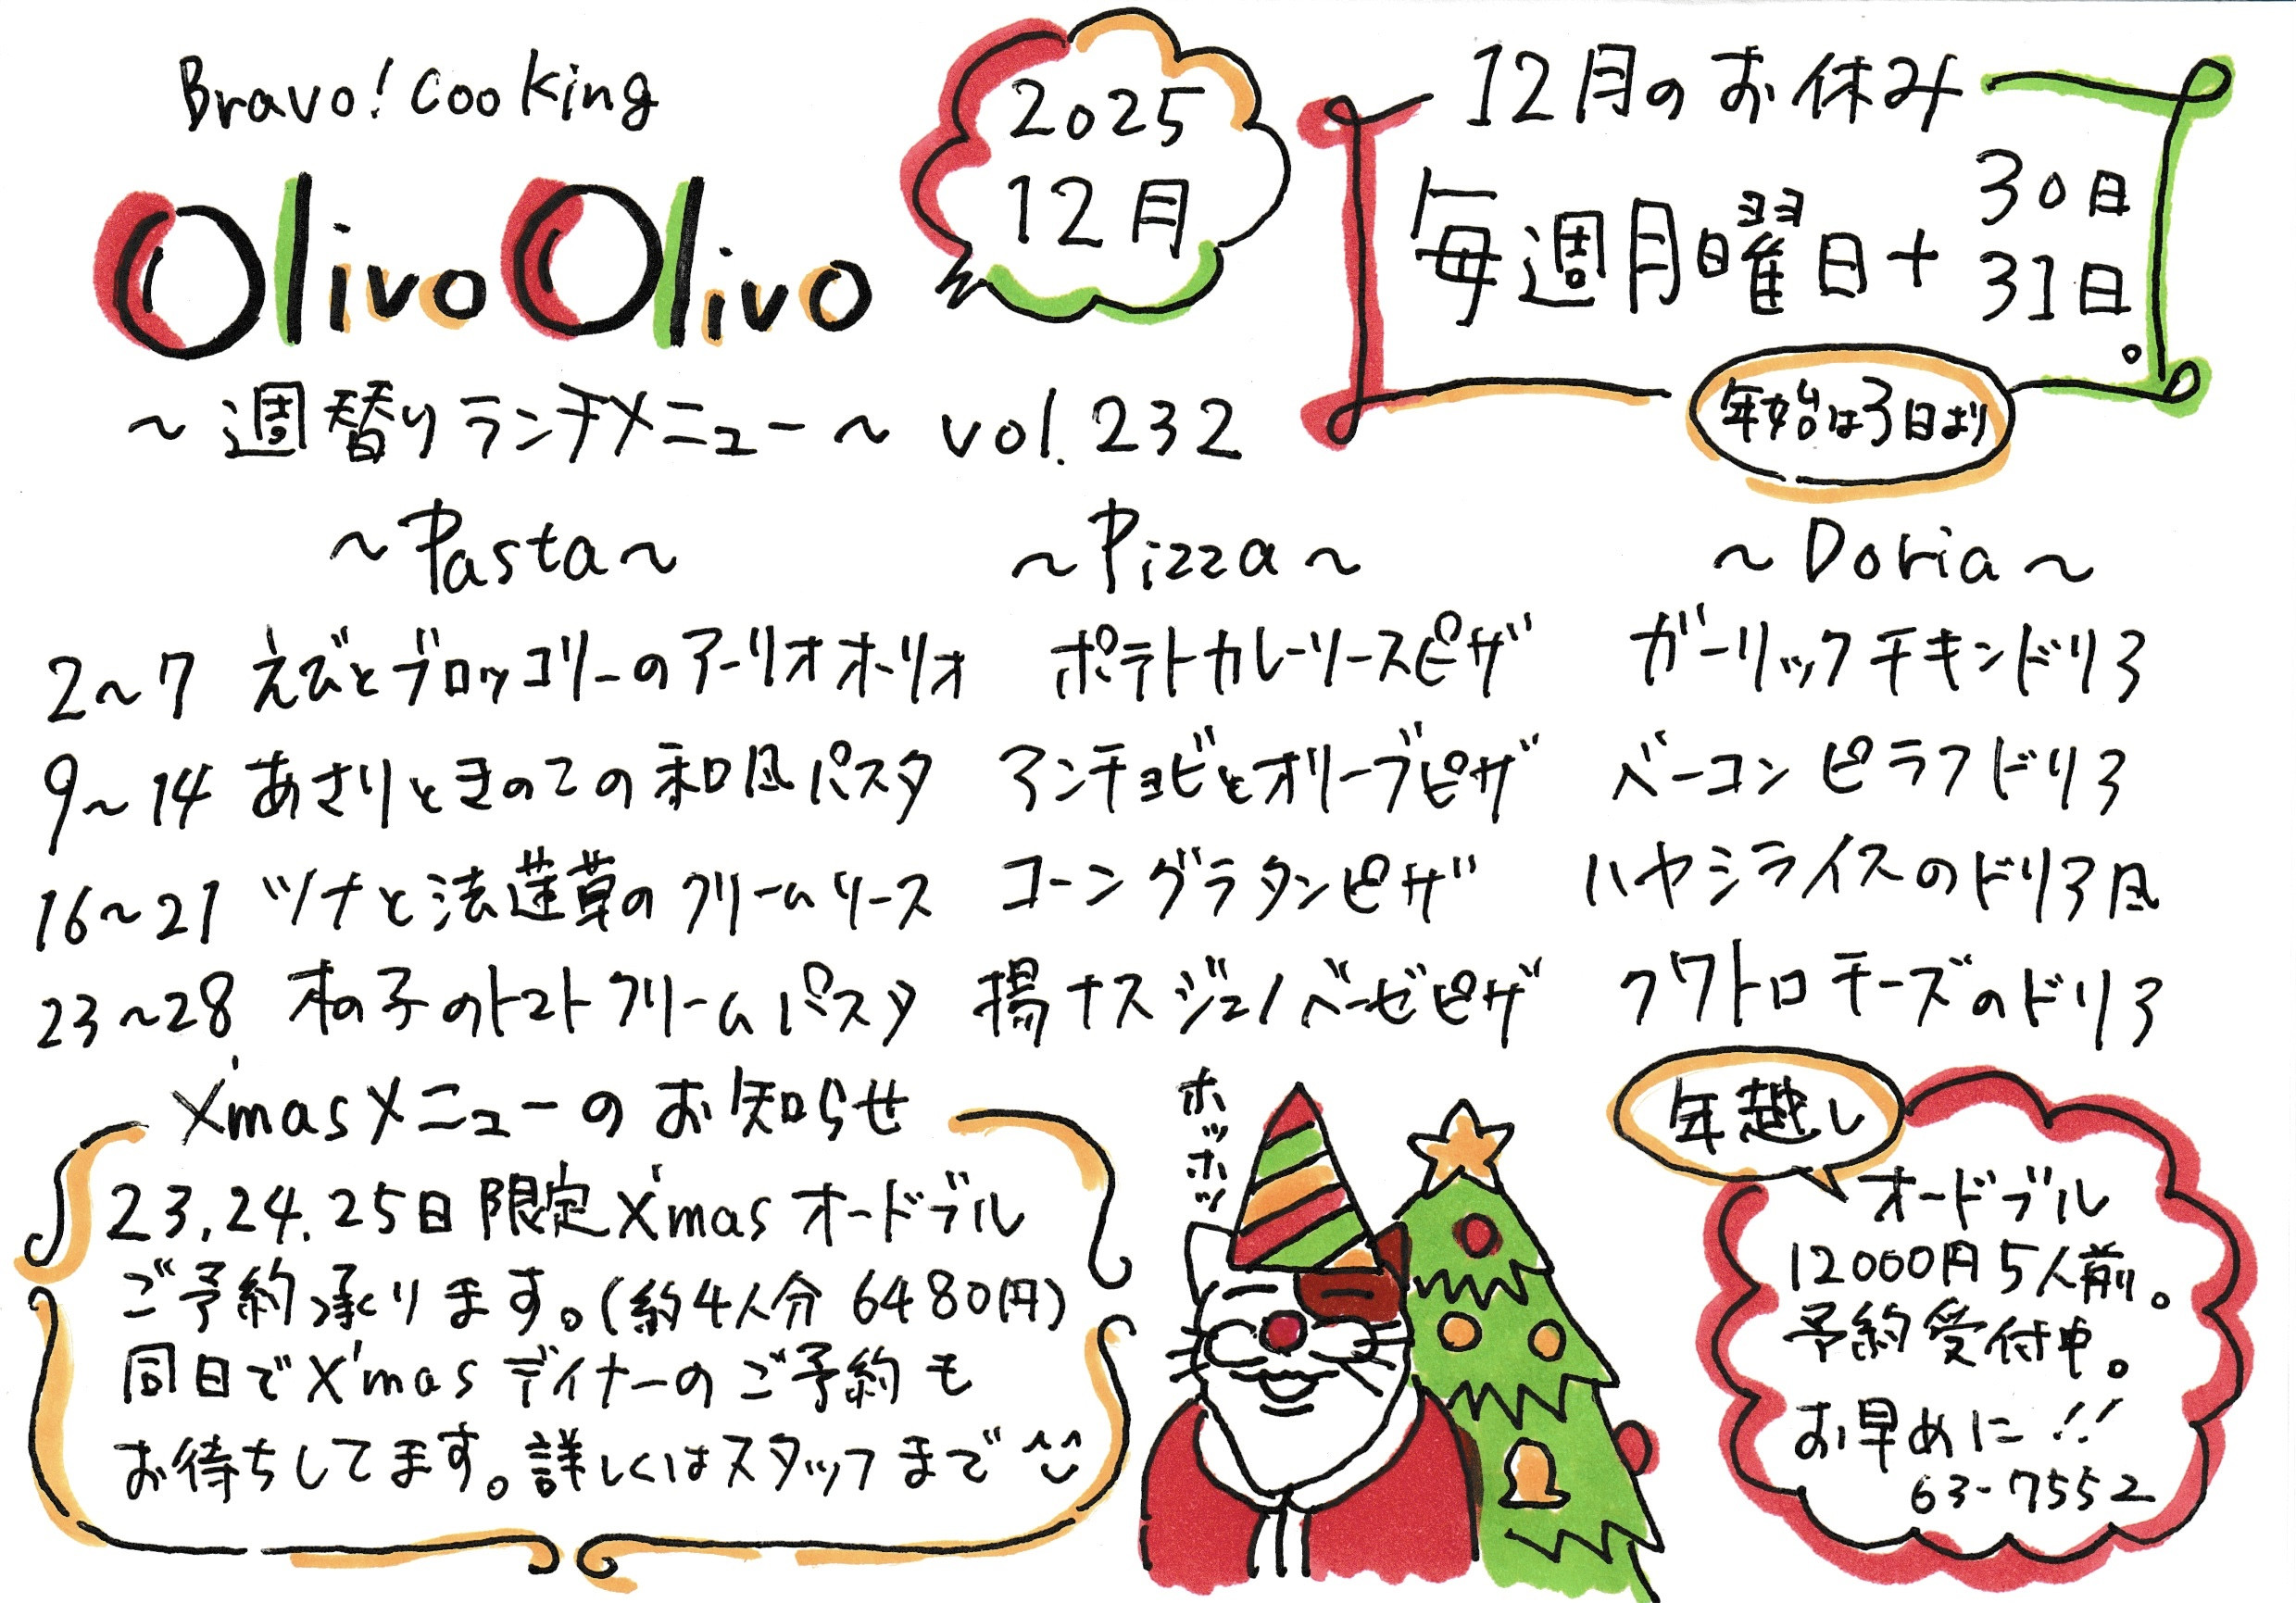 Bravo! Cooking
Olivo Olivo
2025
12月
12月のお休み
毎週月曜日+30日
31日。
年始は3日より
～週替りランチメニュー～ vol.232
～Pasta～ ～Pizza～ ～Doria～
2～7 えびとブロッコリーのアーリオオーリオ ポテトカレーソースピザ ガーリックチキンドリア
9～14 あさりときのこの和風パスタ アンチョビとオリーブピザ ベーコンピラフドリア
16～21 ツナと法蓮草のクリームソース コーングラタンピザ ハヤシライスのドリア風
23～28 木の子のトマトクリームパスタ 揚ナスジェノベーゼピザ クワトロチーズのドリア
X'masメニューのお知らせ
23,24.25日限定X'masオードブル
ご予約承ります。(約4人分 6480円)
同日でX'masディナーのご予約も
お待ちしてます。詳しくはスタッフまで
ホッホッホッ
年越し
オードブル
12000円5人前。
予約受付中。
お早めに!!
63-7552